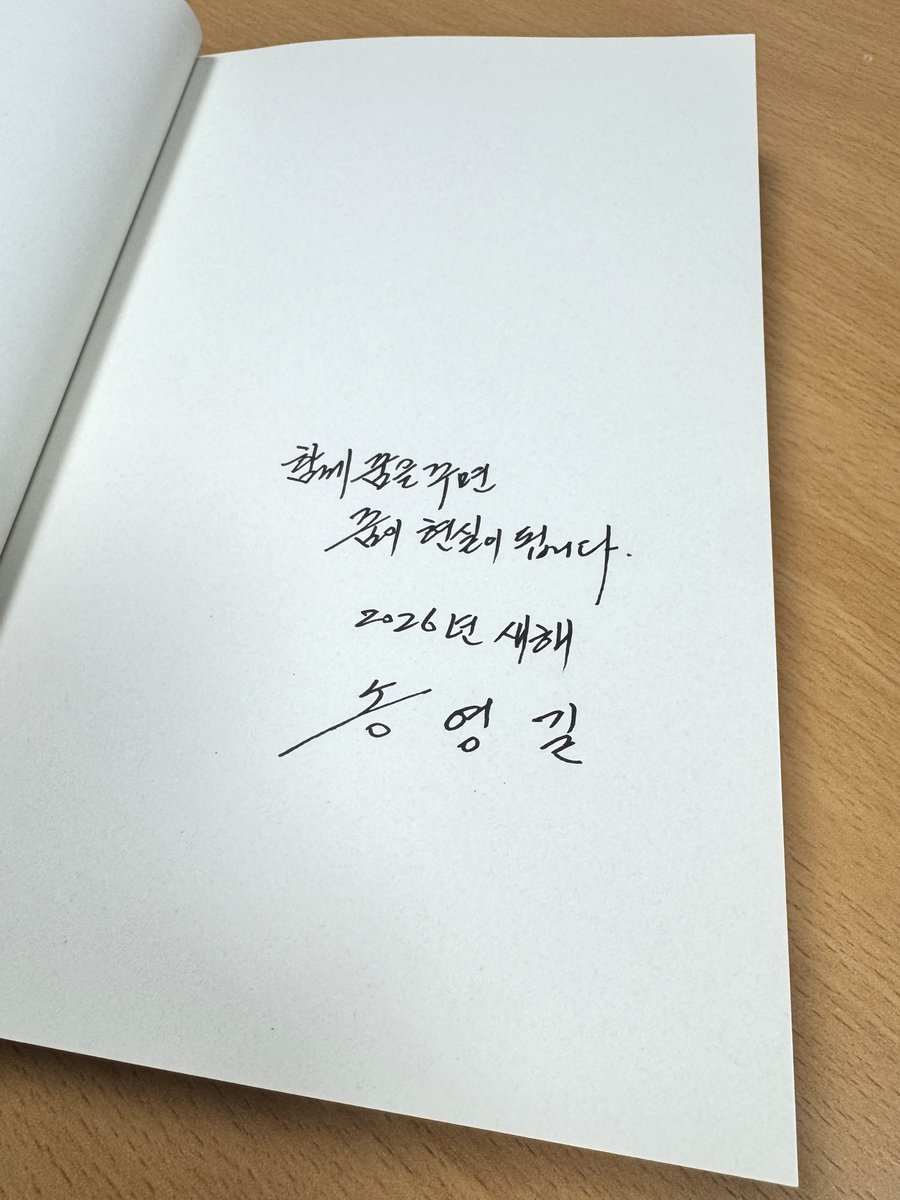 함께 꿈을 꾸면
꿈이 현실이 됩니다.
2026년 새해
송영길